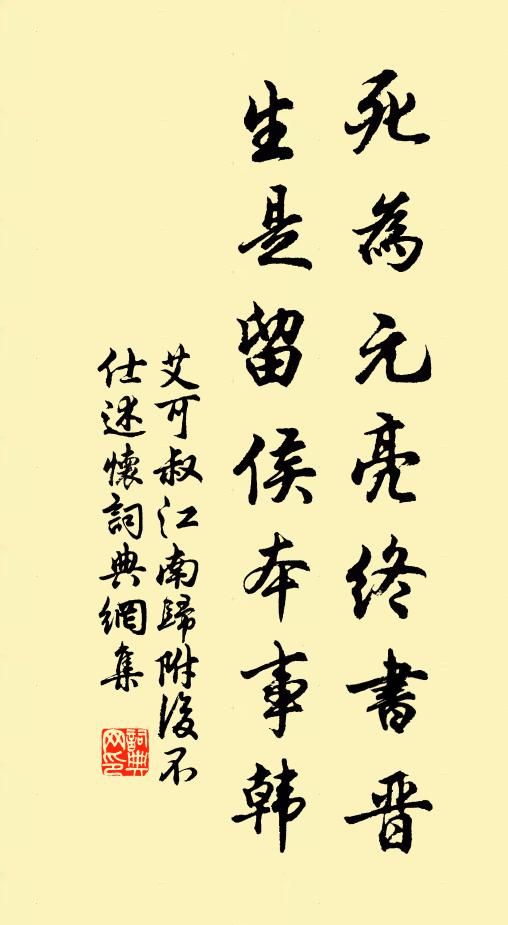 死為元亮終書晋
生是留侯本事韩
艾可叔江南歸附後不
仕述懷詞典網集
詞典
网印